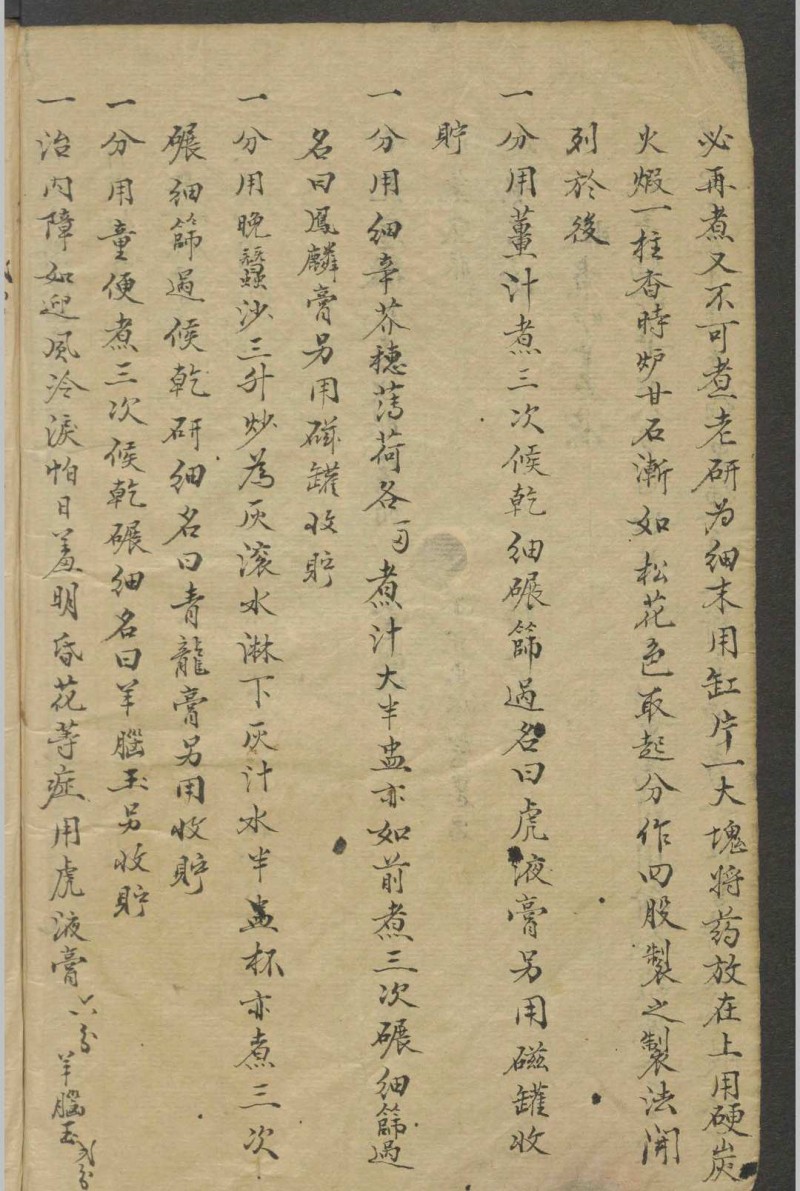 必再煮又不可煮老研为細末用缸片一大塊将药放在上用硬炭
火煅一柱香時炉甘石漸如松花色取起分作四股製之製法開
列於後
一分用薑汁煮三次候乾細碾篩過名曰虎液膏另用磁罐收
貯
一分用細辛芥穗薄荷各煮汁大半盅亦如前煮三次碾細篩過
名曰鳳麟膏另用磁罐收貯
一分用晚蠶沙三升炒為灰滾水淋下灰汁水半盅杯亦煮三次
碾細篩過候乾研細名曰青龍膏另用收貯
一分用童便煮三次候乾碾細名曰羊腦玉另收貯
一治内障如迎風冷淚怕日羞明昏花等症用虎液膏六分羊腦玉弍分